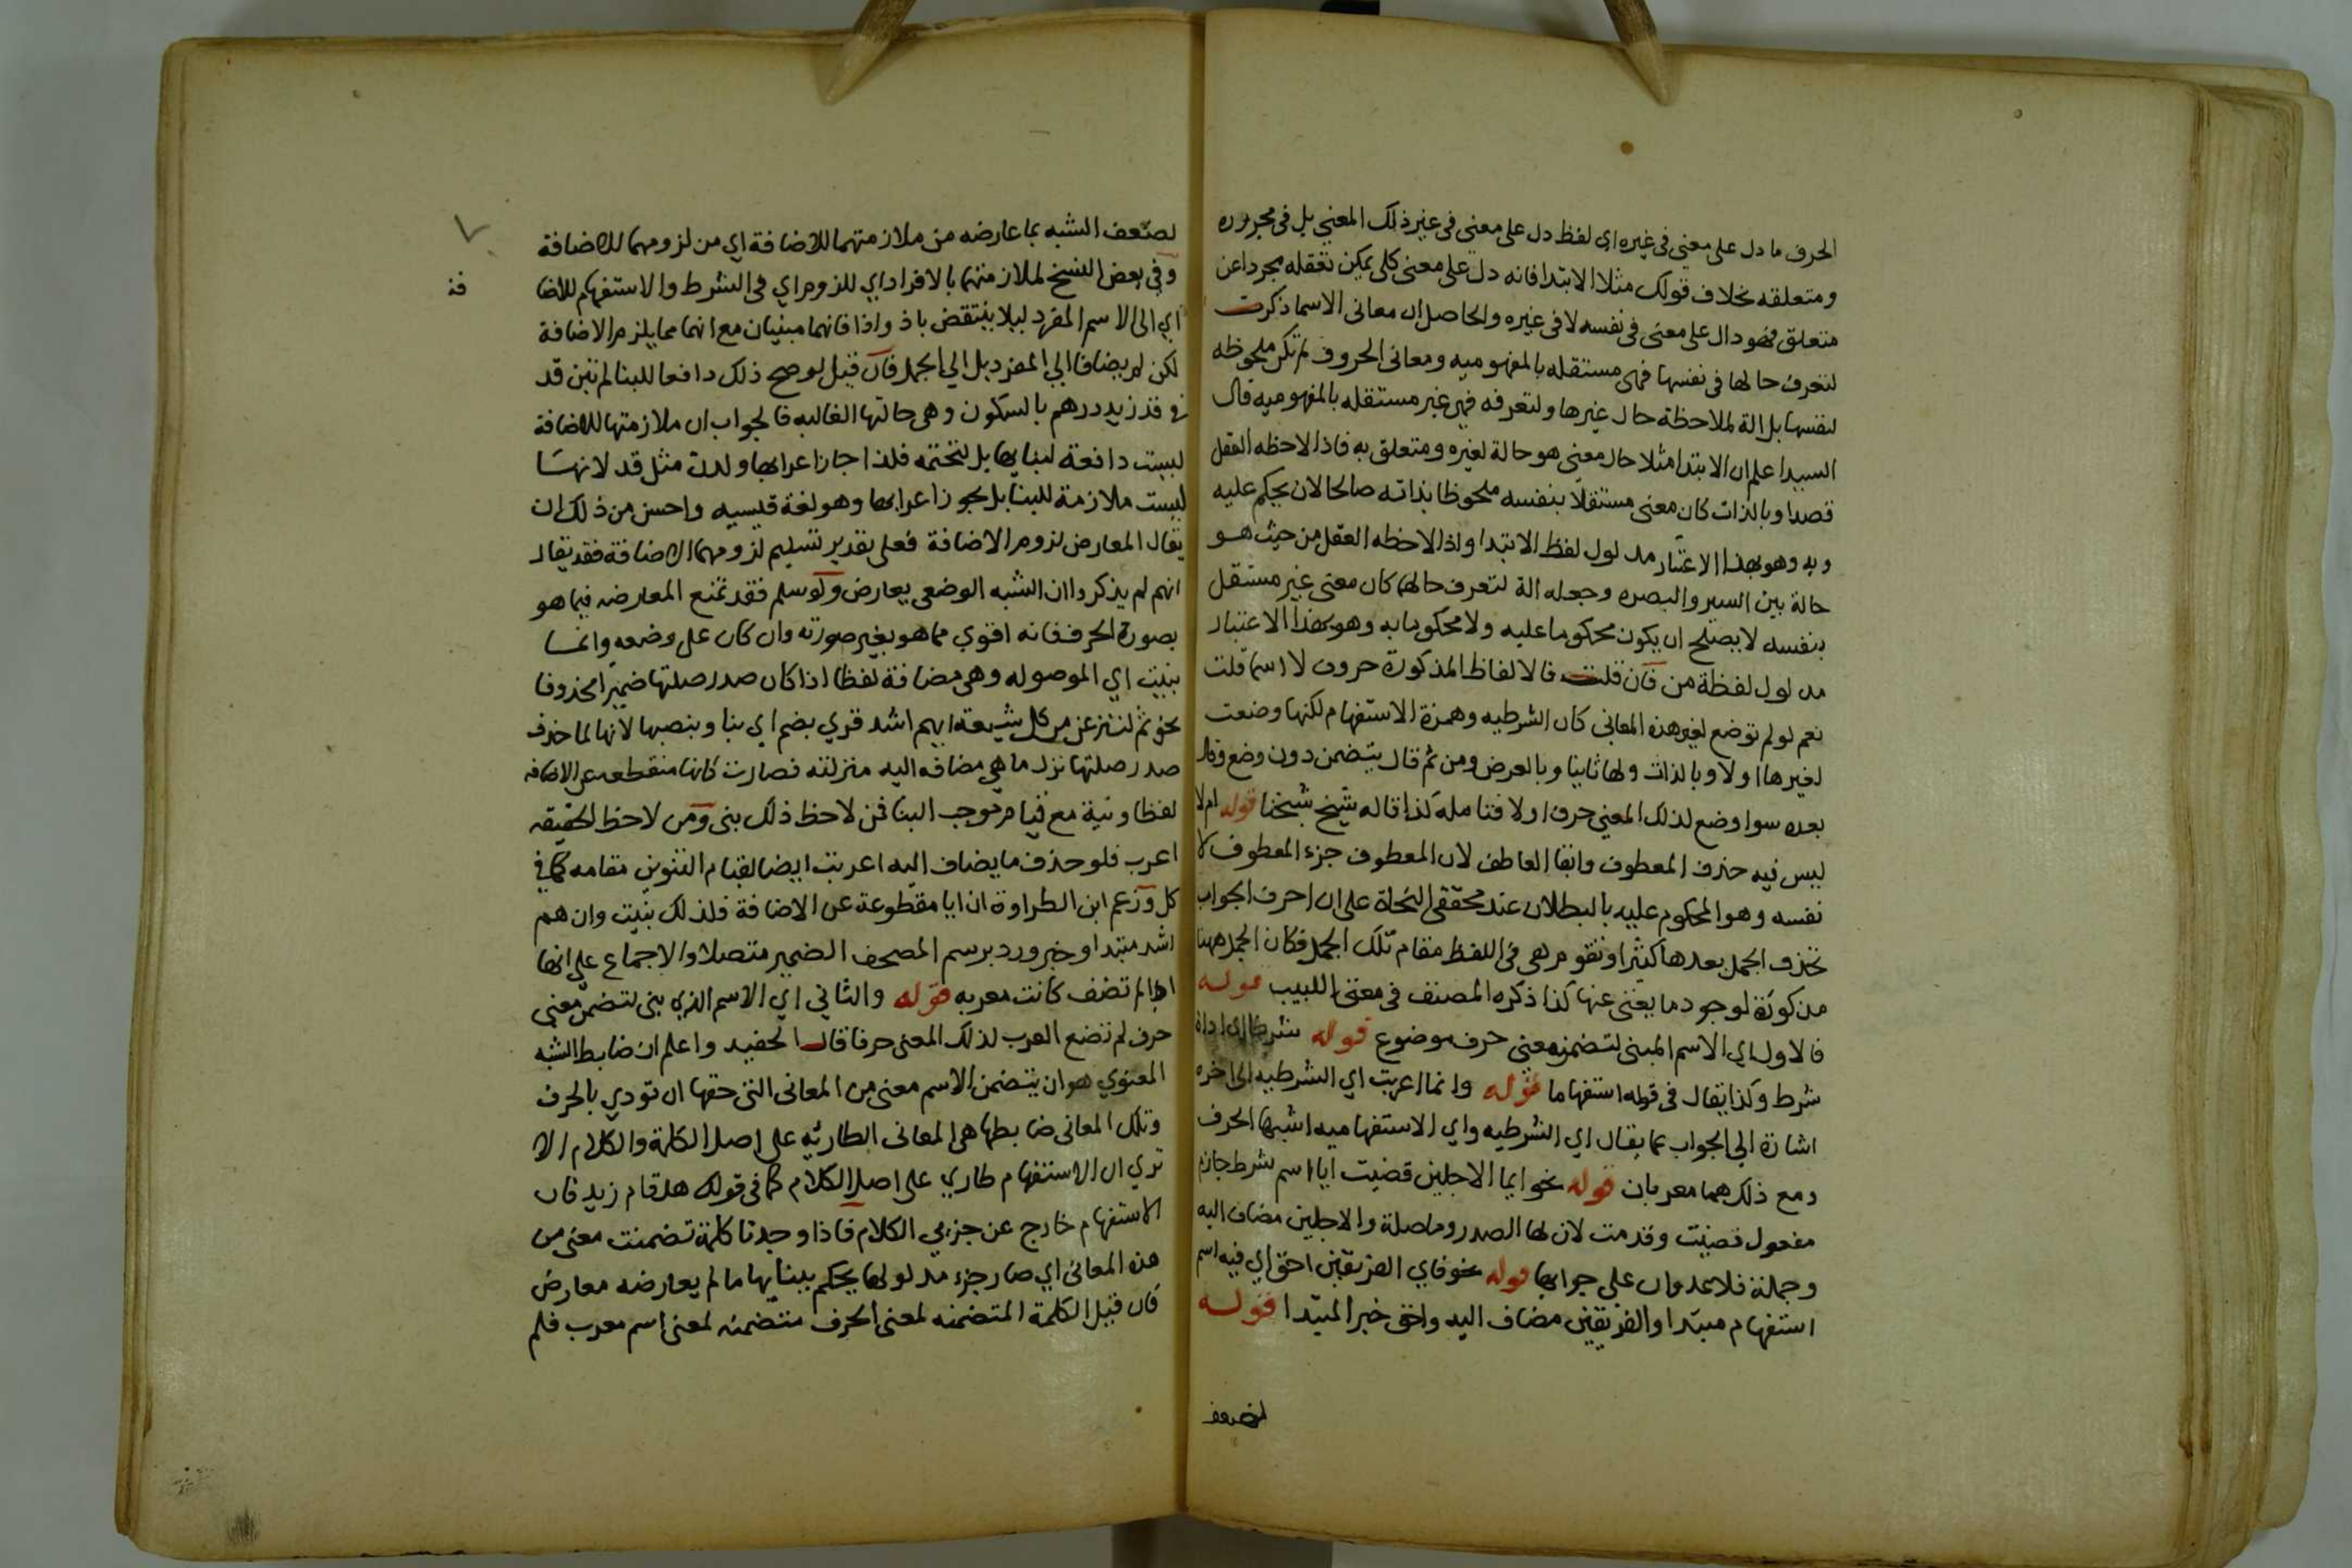 الحرف ما دل على معنى في غيره اي لفظ دل على معنى في غير ذلك المعنى بل في مجروره
ومتعلقه بخلاف قولك مثلا الابتدا فانه دل على معنى كلى يمكن تعقله مجردا عن
متعلق فهو دال على معنى في نفسه لا في غيره والحاصل ان معانى الاسما ذكرت
لتعرف حالها في نفسها فهي مستقله بالمفهوميه ومعانى الحروف لم تكن ملحوظه
لنفسها بل الة لملاحظة حال غيرها ولتعرفه فهي غير مستقله بالمفهوميه قال
السيد اعلم ان الابتدا مثلا حال معنى هو حالة لغيره ومتعلق به فاذا لاحظه العقل
قصدا وبالذات كان معنى مستقلا بنفسه ملحوظا بذاته صالحا لان يحكم عليه
وبه وهو بهذا الاعتبار مدلول لفظ الابتدا واذا لاحظه العقل من حيث هو
حالة بين السير والبصره وجعله الة لتعرف حالهما كان معنى غير مستقل
بنفسه لا يصلح ان يكون محكوما عليه ولا محكوما به وهو بهذا الاعتبار
مدلول لفظة من فان قلت فالالفاظ المذكورة حروف لا اسما قلت
نعم لو لم توضع لغير هذه المعانى كان الشرطيه وهمزة الاستفهام لكنها وضعت
لغيرها اولا وبالذات ولها ثانيا وبالعرض ومن ثم قال يتضمن دون وضع وقال
بعده سوا وضع لذلك المعنى حرف او لا فتامله كذا قاله شيخ شيخنا قوله ام لا
ليس فيه حذف المعطوف وابقا العاطف لان المعطوف جزء المعطوف لا
نفسه وهو المحكوم عليه بالبطلان عند محققى النحاة على ان احرف الجواب
تحذف الجمل بعدها كثيرا وتقوم هي في اللفظ مقام تلك الجمل فكان الجمل ههنا
مذكورة لوجود ما يغنى عنها كذا ذكره المصنف في مغنى اللبيب قوله
فالاول اي الاسم المبنى لتضمنه معنى حرف موضوع قوله شرطا اي اداة
شرط وكذا يقال في قوله استفهاما قوله وانما اعربت اي الشرطيه الى اخره
اشارة الى الجواب عما يقال اي الشرطيه واي الاستفهاميه اشبها الحرف
ومع ذلك هما معربان قوله نحو ايما الاجلين قضيت ايا اسم شرط جازم
مفعول قضيت وقدمت لان لها الصدر وما صلة والاجلين مضاف اليه
وجملة فلا عدوان علي جوابها قوله نحو فاي الفريقين احق اي فيه اسم
استفهام مبتدا والفريقين مضاف اليه واحق خبر المبتدا قوله
لضعف
لضعف الشبه بما عارضه من ملازمتهما للاضافة اي من لزومهما للاضافة
وفي بعض النسخ لملازمتهما بالافراد اي للزوم اي في الشرط والاستفهام للاضا
فة
اي الى الاسم المفرد ليلا ينتقض باذ واذا فانهما مبنيان مع انهما مما يلزم الاضافة
لكن لم يضافا الي المفرد بل الي الجمل فان قيل لو صح ذلك دافعا للبنا لم تبن قد
في قد زيد درهم بالسكون وهي حالتها الغالبه فالجواب ان ملازمتها للاضافة
ليست دافعة لبنايها بل لتحتمه فلذا جاز اعرابها ولدن مثل قد لانها
ليست ملازمة للبنا بل يجوز اعرابها وهو لغة قيسيه واحسن من ذلك ان
يقال المعارض لزوم الاضافة فعلى تقدير تسليم لزومهما الاضافة فقد يقال
انهم لم يذكروا ان الشبه الوضعى يعارض ولو سلم فقد تمنع المعارضه فيما هو
بصورة الحرف فانه اقوي مما هو بغير صورته وان كان على وضعه وانما
بنيت اي الموصوله وهي مضافة لفظا اذا كان صدر صلتها ضميرا محذوفا
نحو ثم لننزعن من كل شيعة ايهم اشد قري بضم اي بنا وبنصبها لانها لما حذف
صدر صلتها نزل ما هي مضافه اليه منزلته فصارت كانها منقطعه عن الاضافه
لفظا ونية مع قيام موجب البنا فمن لاحظ ذلك بنى ومن لاحظ الحقيقه
اعرب فلو حذف ما يضاف اليه اعربت ايضا لقيام التنوين مقامه كما في
كل وزعم ابن الطراوة ان ايا مقطوعة عن الاضافة فلذلك بنيت وان هم
اشد مبتدا وخبر ورد برسم المصحف الضمير متصلا والاجماع على انها
اذا لم تضف كانت معربه قوله والثاني اي الاسم الذي بنى لتضمن معنى
حرف لم تضع العرب لذلك المعنى حرفا قال الحفيد واعلم ان ضابط الشبه
المعنوي هو ان يتضمن الاسم معنى من المعانى التى حقها ان تودي بالحرف
وتلك المعانى ضابطها هي المعانى الطارئه على اصل الكلمة والكلام الا
تري ان الاستفهام طاري على اصل الكلام كما في قولك هل قام زيد فان
الاستفهام خارج عن جزءي الكلام فاذا وجدنا كلمة تضمنت معنى من
هذه المعانى اي صار جزء مدلولها يحكم ببنايها ما لم يعارضه معارض
فان قيل الكلمة المتضمنه لمعنى الحرف متضمنه لمعنى اسم معرب فلم